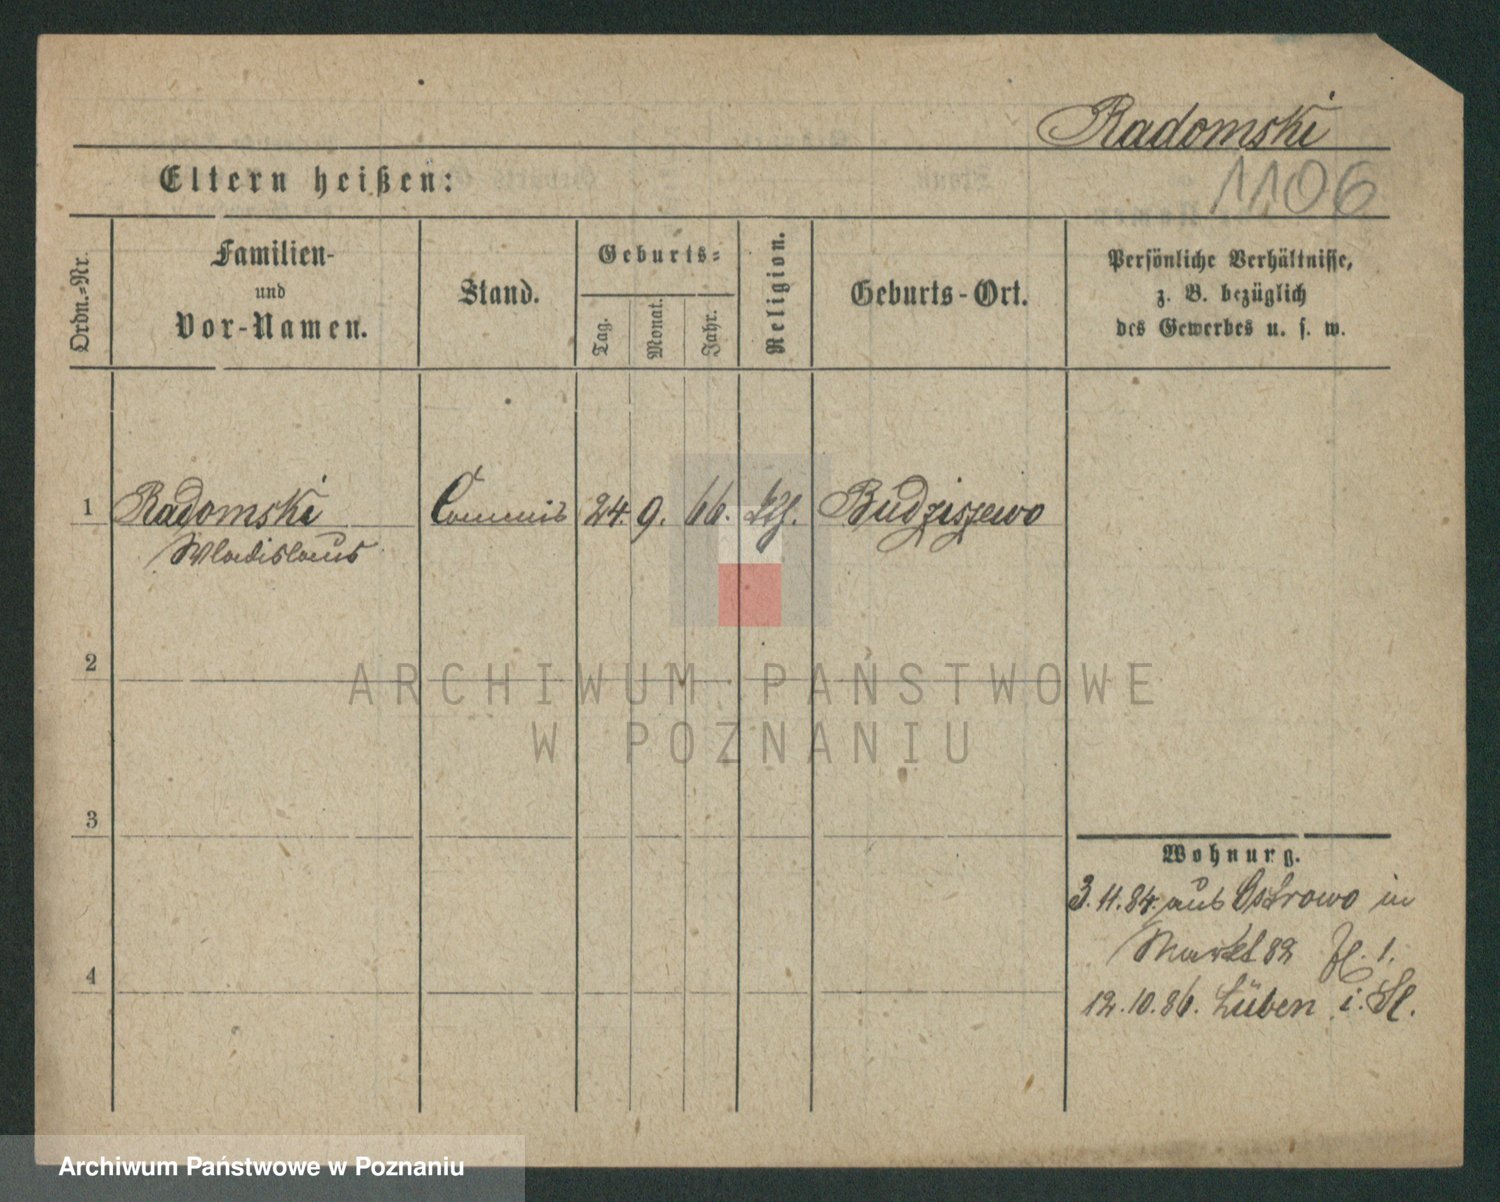 Radomski
1106
Eltern heißen:
Ordn.=Nr.
Familien-
und
Vor-Namen.
Stand.
Geburts=
Tag.
Monat.
Jahr.
Religion.
Geburts-Ort.
Persönliche Verhältnisse,
z. B. bezüglich
des Gewerbes u. s. w.
1 Radomski Commis 24. 9. 66. kth. Budziszewo
Wladislaus
2
ARCHIWUM PAŃSTWOWE
W POZNANIU
3
Wohnung.
3. 11. 84. aus Ostrowo in
Markt 82 1.
4
12. 10. 86. Lüben i. Sl.
Archiwum Państwowe w Poznaniu